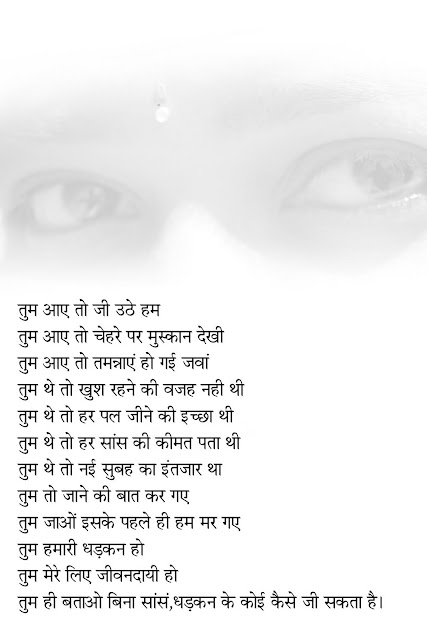 तुम आए तो जी उठे हम
तुम आए तो चेहरे पर मुस्कान देखी
तुम आए तो तमन्नाएं हो गई जवां
तुम थे तो खुश रहने की वजह नही थी
तुम थे तो हर पल जीने की इच्छा थी
तुम थे तो हर सांस की कीमत पता थी
तुम थे तो नई सुबह का इंतजार था
तुम तो जाने की बात कर गए
तुम जाओं इसके पहले ही हम मर गए
तुम हमारी धड़कन हो
तुम मेरे लिए जीवनदायी हो
तुम ही बताओ बिना सांसं,धड़कन के कोई कैसे जी सकता है।